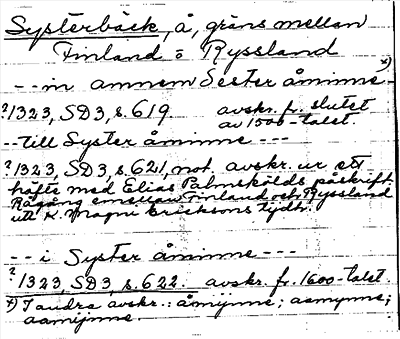 Systerbäck, å, gräns mellan
Finland o Ryssland
--in amnem Sester åminne x)
?1323, SD3, s. 619. avskr. fr. slutet
av 1500-talet.
--till Syster åminne---
?1323, SD3, s. 621, not. avskr. ur ett
häfte med Elias Palmskölds påskrift.
Rågång emellan Finland och Ryssland
uti K. Magni Ericksons tijdh.
--i Syster åminne---
?1323, SD3, s. 622. avskr. fr. 1600-talet.
x) I andra avskr.: åmijnne; aamynne;
aamijnne.